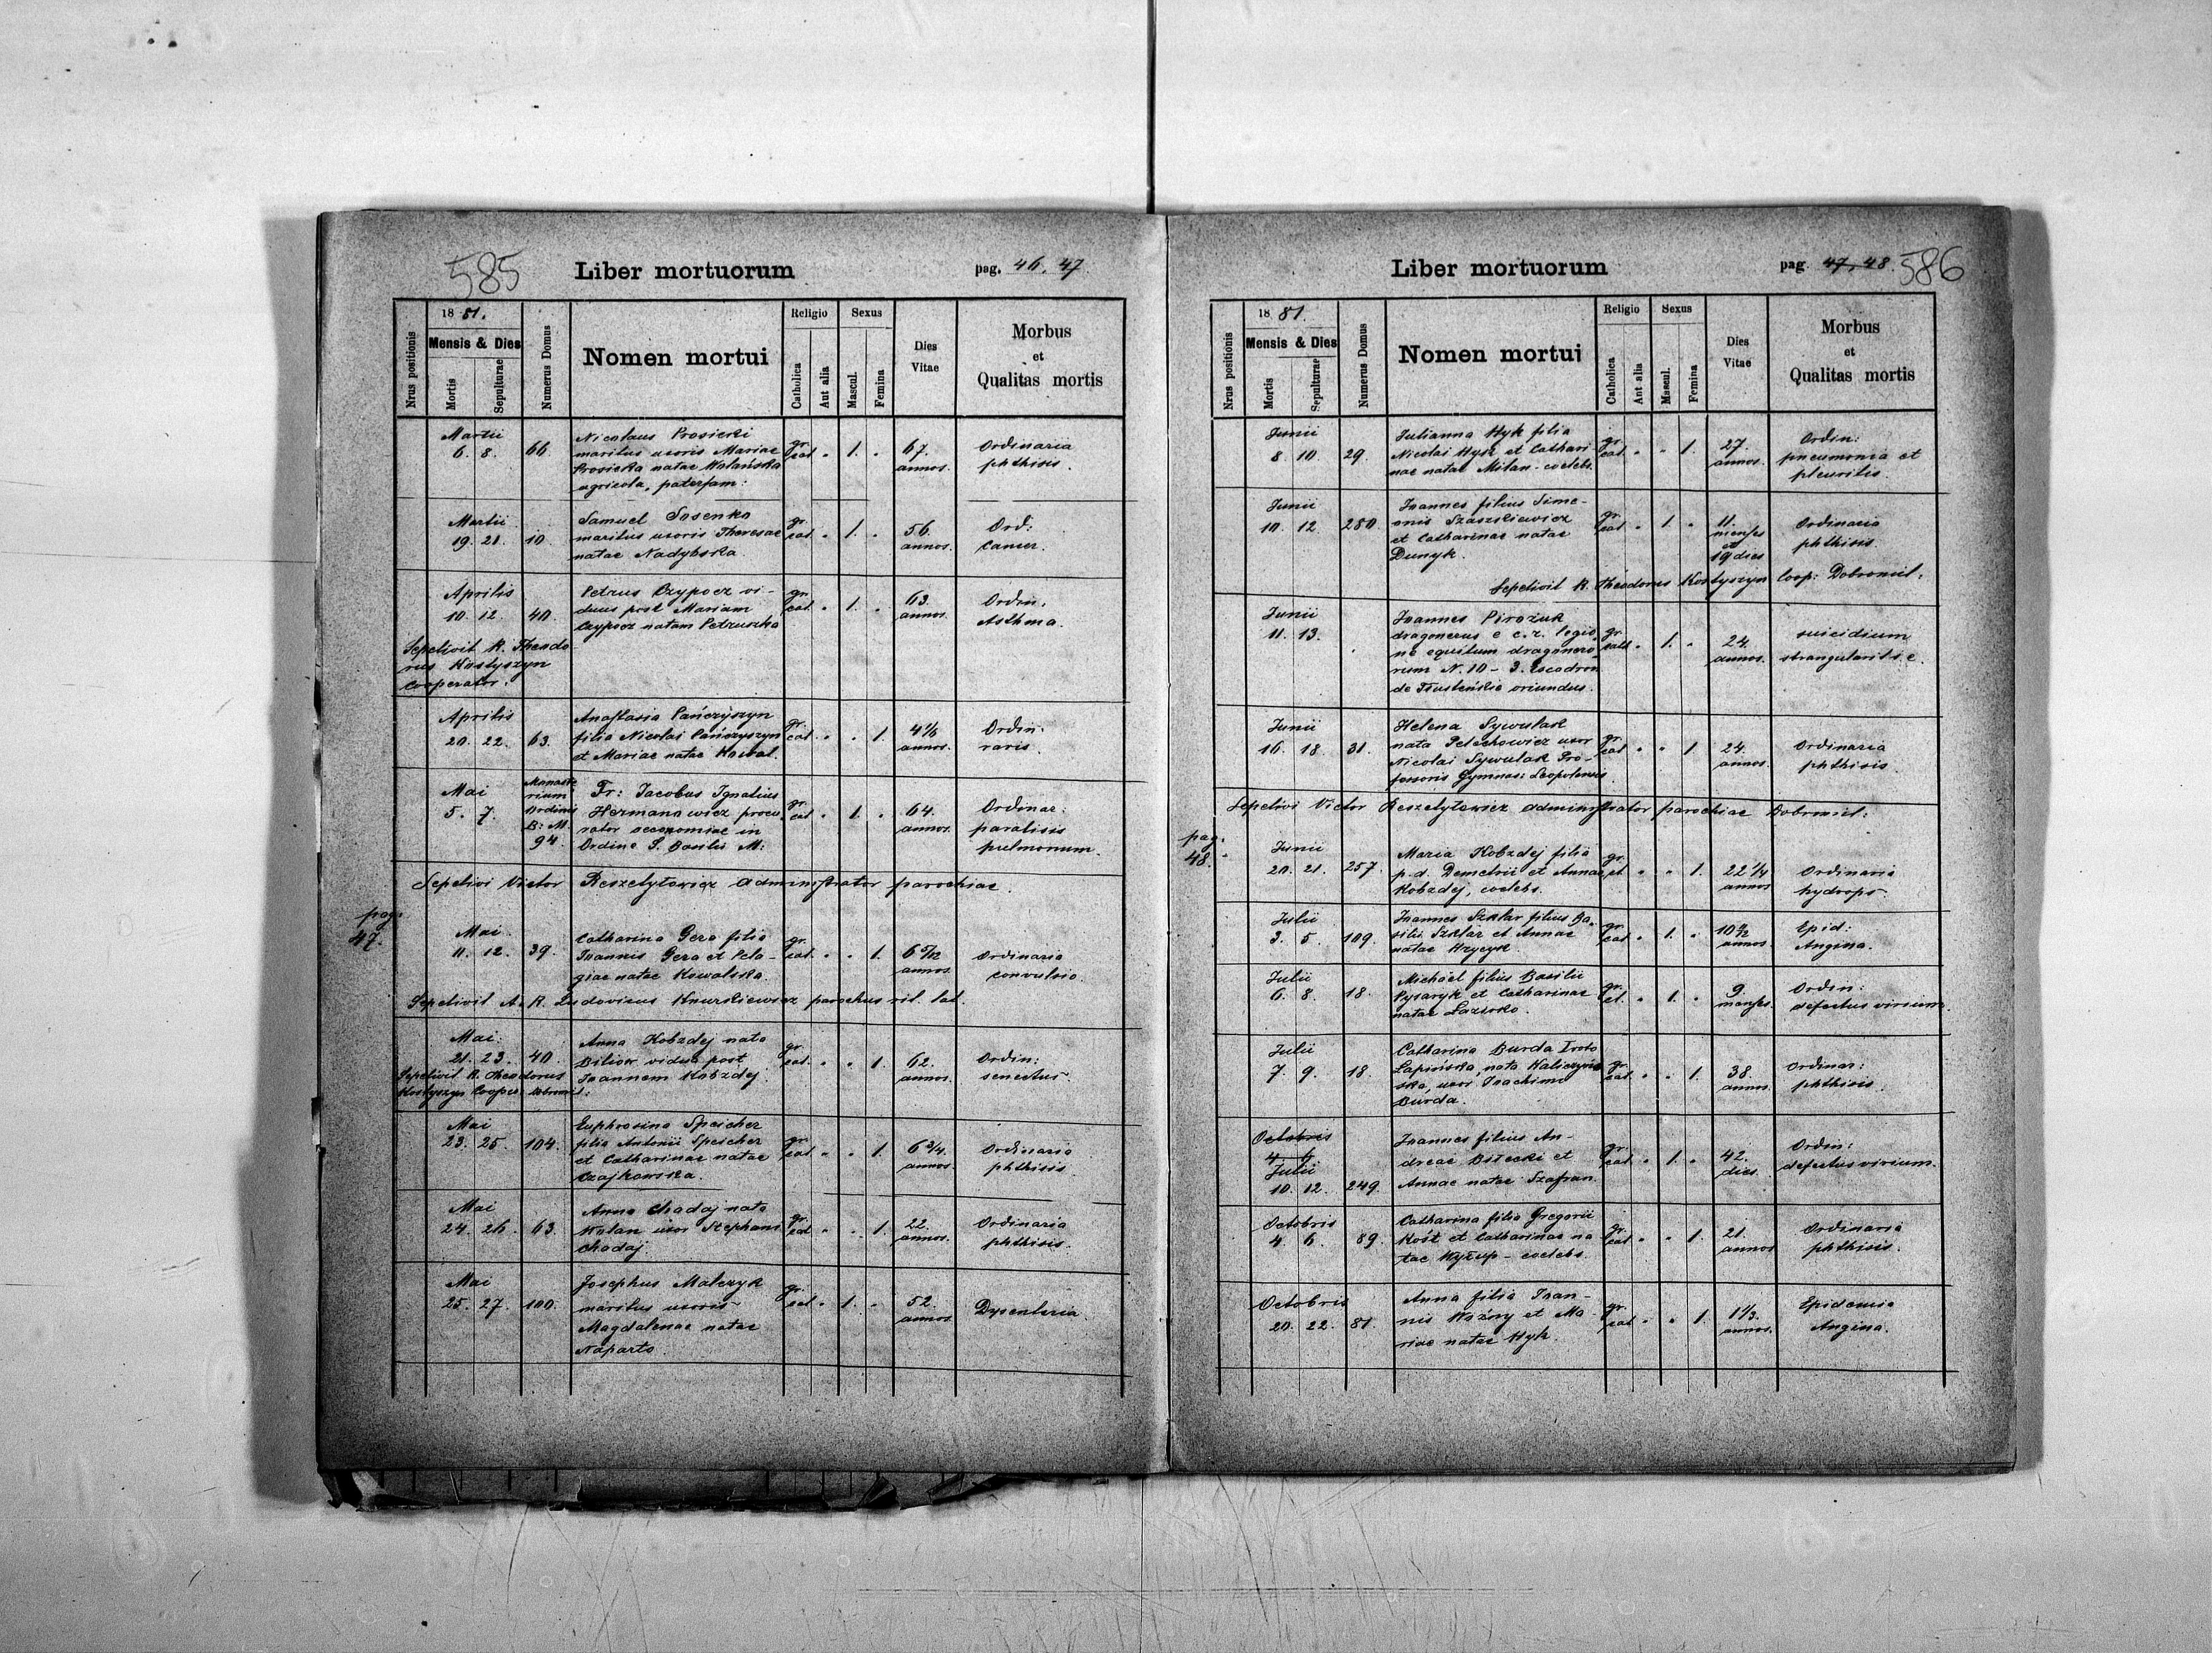 585
Liber mortuorum
pag. 46. 47.
Nrus positionis
18 81.
Mensis & Dies
Mortis
Sepulturae
Numerus Domus
Nomen mortui
Religio
Catholica
Aut alia
Sexus
Mascul.
Femina
Dies
Vitae
Morbus
et
Qualitas mortis
Martii
6. 8. 66.
Nicolaus Prosicki
maritus uxoris Mariae
Prosicka natae Wolańska
agricola, paterfam:
gr.
cat. " 1. "
67.
annos.
Ordinaria
phthisis.
Martii
19. 21. 10.
Samuel Sosenko
maritus uxoris Theresae
natae Nadybska.
gr.
cat. " 1. "
56.
annos.
Ord:
Cancer.
Aprilis
10. 12. 40.
Petrus Czypocz vi-
duus post Mariam
Czypocz natam Petruszka
gr.
cat. " 1. "
63.
annos.
Ordin.
Asthma.
Sepelivit R. Theodo
rus Kostyszyn
Cooperator.
Aprilis
20. 22. 63.
Anastasia Pańczyszyn
filia Nicolai Pańczyszyn
et Mariae natae Kowal.
gr.
cat. " " 1.
4 1/6
annos.
Ordin.
raris.
Mai
5. 7.
Monaste
rium
Ordinis
B: M.
94.
Fr: Jacobus Ignatius
Hermanowicz procu
rator oeconomiae in
Ordine S. Basilii M:
gr.
cat " 1. "
64.
annos.
Ordinar:
paralisis
pulmonum.
Sepelivi Victor Reszetyłowicz administrator parochiae.
pag.
47.
Mai.
11. 12. 39.
Catharina Gera filia
Joannis Gera et Pela-
giae natae Kowalska.
gr.
cat. " " 1.
6 5/12
annos.
Ordinaria
convulsio.
Sepelivit A. R. Ludovicus Knurskiewicz parochus rit. lat.
Mai.
21. 23. 40.
Anna Kobzdej nata
Biliow vidua post
Joannem Kobzdej.
gr.
cat. " " 1.
62.
annos.
Ordin:
senectus.
Sepelivit R. Theodorus
Kostyszyn Cooper: Dobromil:
Mai
23. 25. 104.
Euphrosina Speicher
filia Antonii Speicher
et Catharinae natae
Czajkowska.
gr.
cat. " " 1.
6 3/4
annos.
Ordinaria
phthisis
Mai
24. 26. 63.
Anna Chadaj nata
Wolan uxor Stephani
Chadaj.
gr.
cat " " 1.
22.
annos.
Ordinaria
phthisis.
Mai
25. 27. 100.
Josephus Malczyk
maritus uxoris
Magdalenae natae
Naparto.
gr.
cat " 1. "
52.
annos.
Dysenteria.
Liber mortuorum
pag. 47, 48.
586
Nrus positionis
18 81.
Mensis & Dies
Mortis
Sepulturae
Numerus Domus
Nomen mortui
Religio
Catholica
Aut alia
Sexus
Mascul.
Femina
Dies
Vitae
Morbus
et
Qualitas mortis
Junii
8. 10. 29.
Julianna Hyk filia
Nicolai Hyk et Cathari
nae natae Milan. coelebs.
gr.
cat. " " 1.
27.
annos.
Ordin:
pneumonia et
pleuritis.
Junii
10. 12 280.
Joannes filius Sime-
onis Szaszkiewicz
et Catharinae natae
Dunyk.
gr.
cat " 1. "
11.
menses
et
19 dies
Ordinario
phthisis.
Sepelivit R. Theodorus Kostyszyn Coop: Dobromil:
Junii
11. 13.
Joannes Pirożuk
dragonerus e c. r. legio
ne equitum dragonero
rum N. 10 - 3. Escadron
de Tłusteńkie oriundus.
gr.
cath " 1. "
24.
annos.
suicidium
Junii
16. 18. 31.
Helena Sywulak
nata Pelechowicz uxor
Nicolai Sywulak Pro-
fessoris Gymnas: Leopolensis.
gr.
cat " " 1.
24.
annos.
Ordinaria
phthisis.
Sepelivi Victor Reszetyłowicz administrator parochiae Dobromil:
pag.
48.
Junii
20. 21. 257.
Maria Kobzdej filia
p.d. Demetrii et Annae
Kobzdej, coelebs.
gr.
ct. " " 1.
22 1/4
annos
Ordinaria
hydrops.
Julii
3. 5. 109.
Joannes Szklar filius Ba-
silii Szklar et Annae
natae Hrycyk.
gr.
cat. " 1. "
annos
Epid:
Angina.
Julii
6. 8. 18.
Michaël filius Basilii
Pysaryk et Catharinae
natae Łazirko.
gr.
ct. " 1. "
9.
menses.
Ordin:
defectus virium.
Julii
7. 9. 18.
Catharina Burda Iroto
Łapińska, nata Kaliczyńs
ska, uxor Joachimi
Burda.
gr.
cat. " " 1.
38.
annos.
Ordinar:
phthisis.
Octobris
4. 6
Julii
10. 12. 249.
Joannes filius An-
dreae Bilecki et
Annae natae Szafran.
gr.
cat " 1. "
42.
dies.
Ordin:
defectus virium.
Octobris
4. 6. 89.
Catharina filia Gregorii
Kost et Catharinae na
tae Wyrup - coelebs.
gr.
cat " " 1.
21.
annos
Ordinaria
phthisis.
Octobris
20. 22. 81.
Anna filia Joan-
nis Woźny et Ma-
riae natae Hyk.
gr.
cat " " 1.
1 1/3.
annos.
Epidemia
Angina.